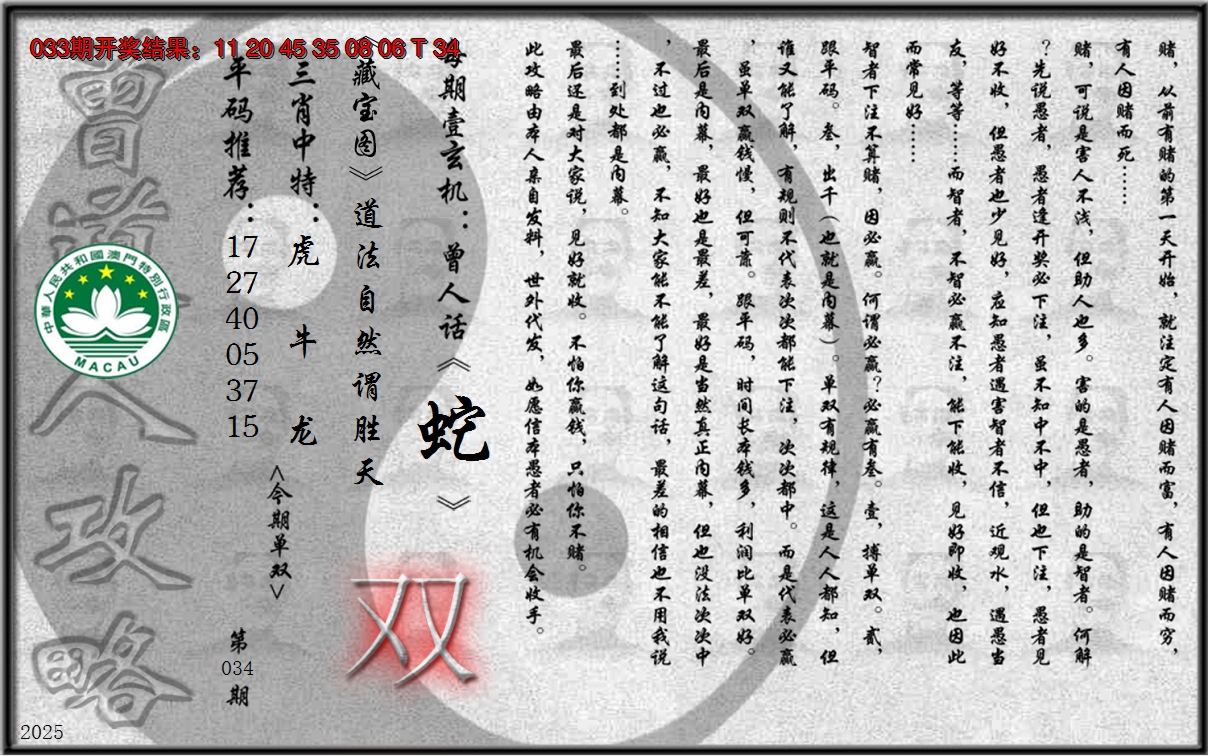 033期开奖结果：11 20 45 35 08 06 T 34
赌，从前有赌的第一天开始，就注定有人因赌而富，有人因赌而穷，
有人因赌而死……
赌，可说是害人不浅，但助人也多。害的是愚者，助的是智者。何解
？先说愚者，愚者逢开奖必下注，虽不知中不中，但也下注，愚者见
好不收，但愚者也少见好，应知愚者遇害智者不信，近观水，遇愚当
友，等等……而智者，不智必赢不注，能下能收，见好即收，也因此
而常见好……
智者下注不算赌，因必赢。何谓必赢？必赢有叁。壹，搏单双。贰，
跟平码。叁，出千（也就是内幕）。单双有规律，这是人人都知，但
谁又能了解，有规则不代表次次都能下注，次次都中。而是代表必赢
，虽单双赢钱慢，但可靠。跟平码，时间长本钱多，利润比单双好。
最后是内幕，最好也是最差，最好是当然真正内幕，但也没法次次中
，不过也必赢，不知大家能不能了解这句话，最差的相信也不用我说
……到处都是内幕。
最后还是对大家说，见好就收。不怕你赢钱，只怕你不赌。
此攻略由本人亲自发料，世外代发，如愿信本愚者必有机会收手。
每期壹玄机：曾人话《蛇》
《藏宝图》道法自然谓胜天
双
三肖中特：虎 牛 龙
<今期单双>
平码推荐：
17
27
40
05
37
15
第
034
期
曾道人攻略
中華人民共和國澳門特別行政區
MACAU
2025